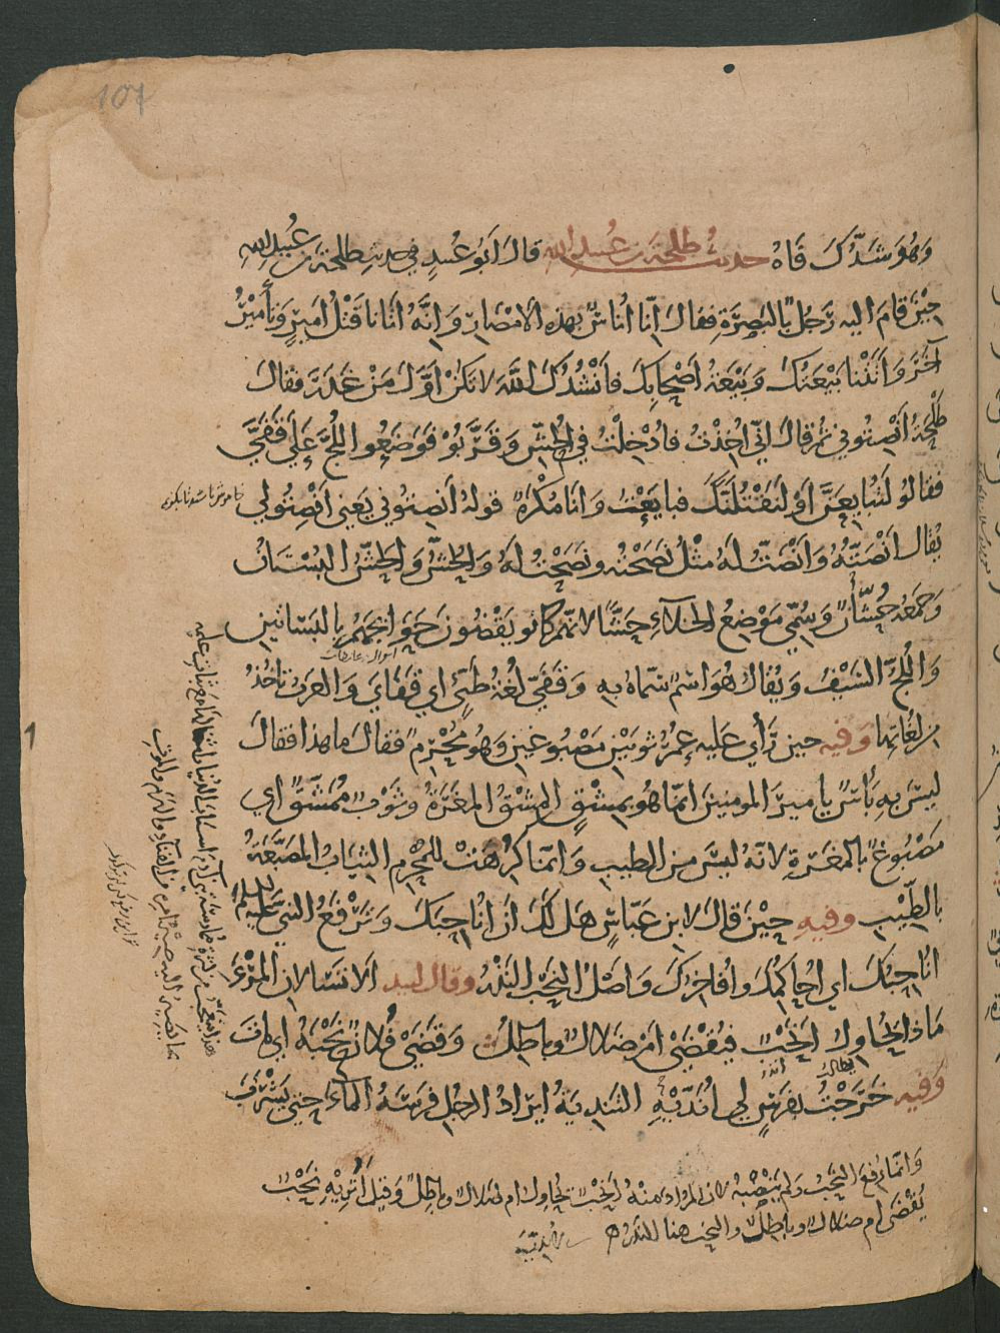 107
وَهُوَ شَدُّكَ فَاهُ حديث طلحة بن عُبيد الله قالَ اَبُو عُبيدٍ في حديثِ طلحة بن عُبيدِ اللهِ
حِيْنَ قامَ اليه رَجُلٌ بالبَصرَةِ فقالَ اِنّا اُناسٌ بهذهِ الاَمْصَارِ وَاِنَّهُ اَتَانا قَتْلُ اَميرٍ وَتأميْرُ
آخَرَ وَاَتَتْنا بَيْعَتُكَ وَبَيْعَةُ اَصْحابِكَ فاَنْشُدُكَ اللّهَ لا تكُنْ اَوَّلَ مَنْ غَدَرَ فقالَ
طَلْحَةُ اَنْصِتُوني ثمّ قالَ اِنّي اُخِذْتُ فاُدْخِلْتُ في الحُشِّ وَقَرَّبُوْ فوَضَعُوا اللُّجَّ عَلىَ قَفَيَّ
فقالُو لَتُبايِعَنَّ اَوْ لَنَقْتُلَنَّكَ فبايَعْتُ وَاَنا مُكْرَهٌ قولهُ اَنصِتوُني يَعني اَنْصِتُولي
يُقال اَنْصَتُّهُ وَاَنْصَتُّ لَهُ مثْلُ نَصَحْتُهُ ونَصَحْتُ لَهُ وَالحُشُّ وَالحَشُّ البُسْتَانُ
وَجَمْعُهُ حُشَّانٌ وَسُمِّي مَوْضِعُ الخلاءِ حَشًّا لانّهُم كانو يَقْضُونَ حَوَائجَهُمْ بالبَسَاتينِ
وَاللُّجُّ السَّيْفُ وَيُقالُ هُوَ اسْمٌ سَمّاهُ بهِ وَقَفَيَّ لُغةُ طَيِّئٍ اي قَفايَ وَالعربُ تأخُذُ
مِن لُغاتِها وَفيه حين رَأي عَليهِ عمرُ ثوبَيْنِ مَصْبُوغينِ وَهُو مُحْرِمٌ فقالَ ما هذا فقالَ
ليسَ بهِ بَأسٌ يا ميرَ المومنينَ انّما هُوَ بمِشْقٍ المِشْقُ المَغرَةُ وثوْبٌ مُمَشَّقٌ اي
مَصْبُوغٌ بالمَغرَةِ لانّهُ ليْسَ من الطيبِ وَانّما كُرِهَتْ للمُحْرِمِ الثِيَابُ المُصَبَّغَةُ
بالطِّيْبِ وفيهِ حِيْنَ قالَ لابن عَبّاسٍ هَلْ لَكَ اَنْ اُناحِبَكَ وَتَرْفَعُ النبيَّ عَليه السلم
اُناحِبُكَ اي اُحاكِمُكَ وَاُفاخِرُكَ وَاَصْلُ النَحْبِ النَذْرُ وَقالَ لبيد اَلا تَسْالانِ المَرْءَ
مَاذا يُحاوِلُ اَنَحْبٌ فيُقْضَى اَمْ ضَلالٌ وباطِلُ وَقَضَى فُلانٌ نَحْبَهُ اي ماتَ
وَفيه خَرَجْتُ بفرَسٍ لي اُنَدِّيْهِ التَندِيَةُ ايْرَادُ الرجُلِ فرَسَهُ الماءَ حتى يَشْرَبَ
وَانّما رَفَعَ النَحْبُ وَلم يَنْصِبْهُ لانّ المرَادَ منهُ اَنَحْبٌ يُحَاوِل ام ضلالٌ وباطِلٌ وَقيلَ
يُقْضَى ام ضلالٌ وباطِلٌ والنحب هنا للنذر